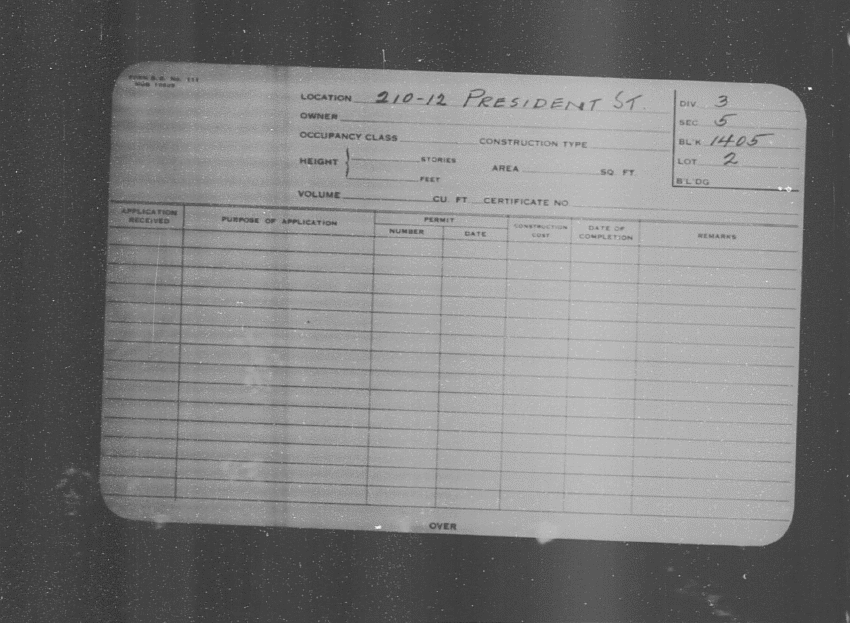 FORM B.D. No. 111
LOCATION 210-12 PRESIDENT ST.
DIV. 3
OWNER
SEC 5
OCCUPANCY CLASS CONSTRUCTION TYPE
BL'K 1405
HEIGHT STORIES FEET AREA SQ. FT.
LOT 2
B'LDG
VOLUME CU. FT. CERTIFICATE NO.
APPLICATION RECEIVED
PURPOSE OF APPLICATION
PERMIT
NUMBER
DATE
CONSTRUCTION COST
DATE OF COMPLETION
REMARKS
OVER